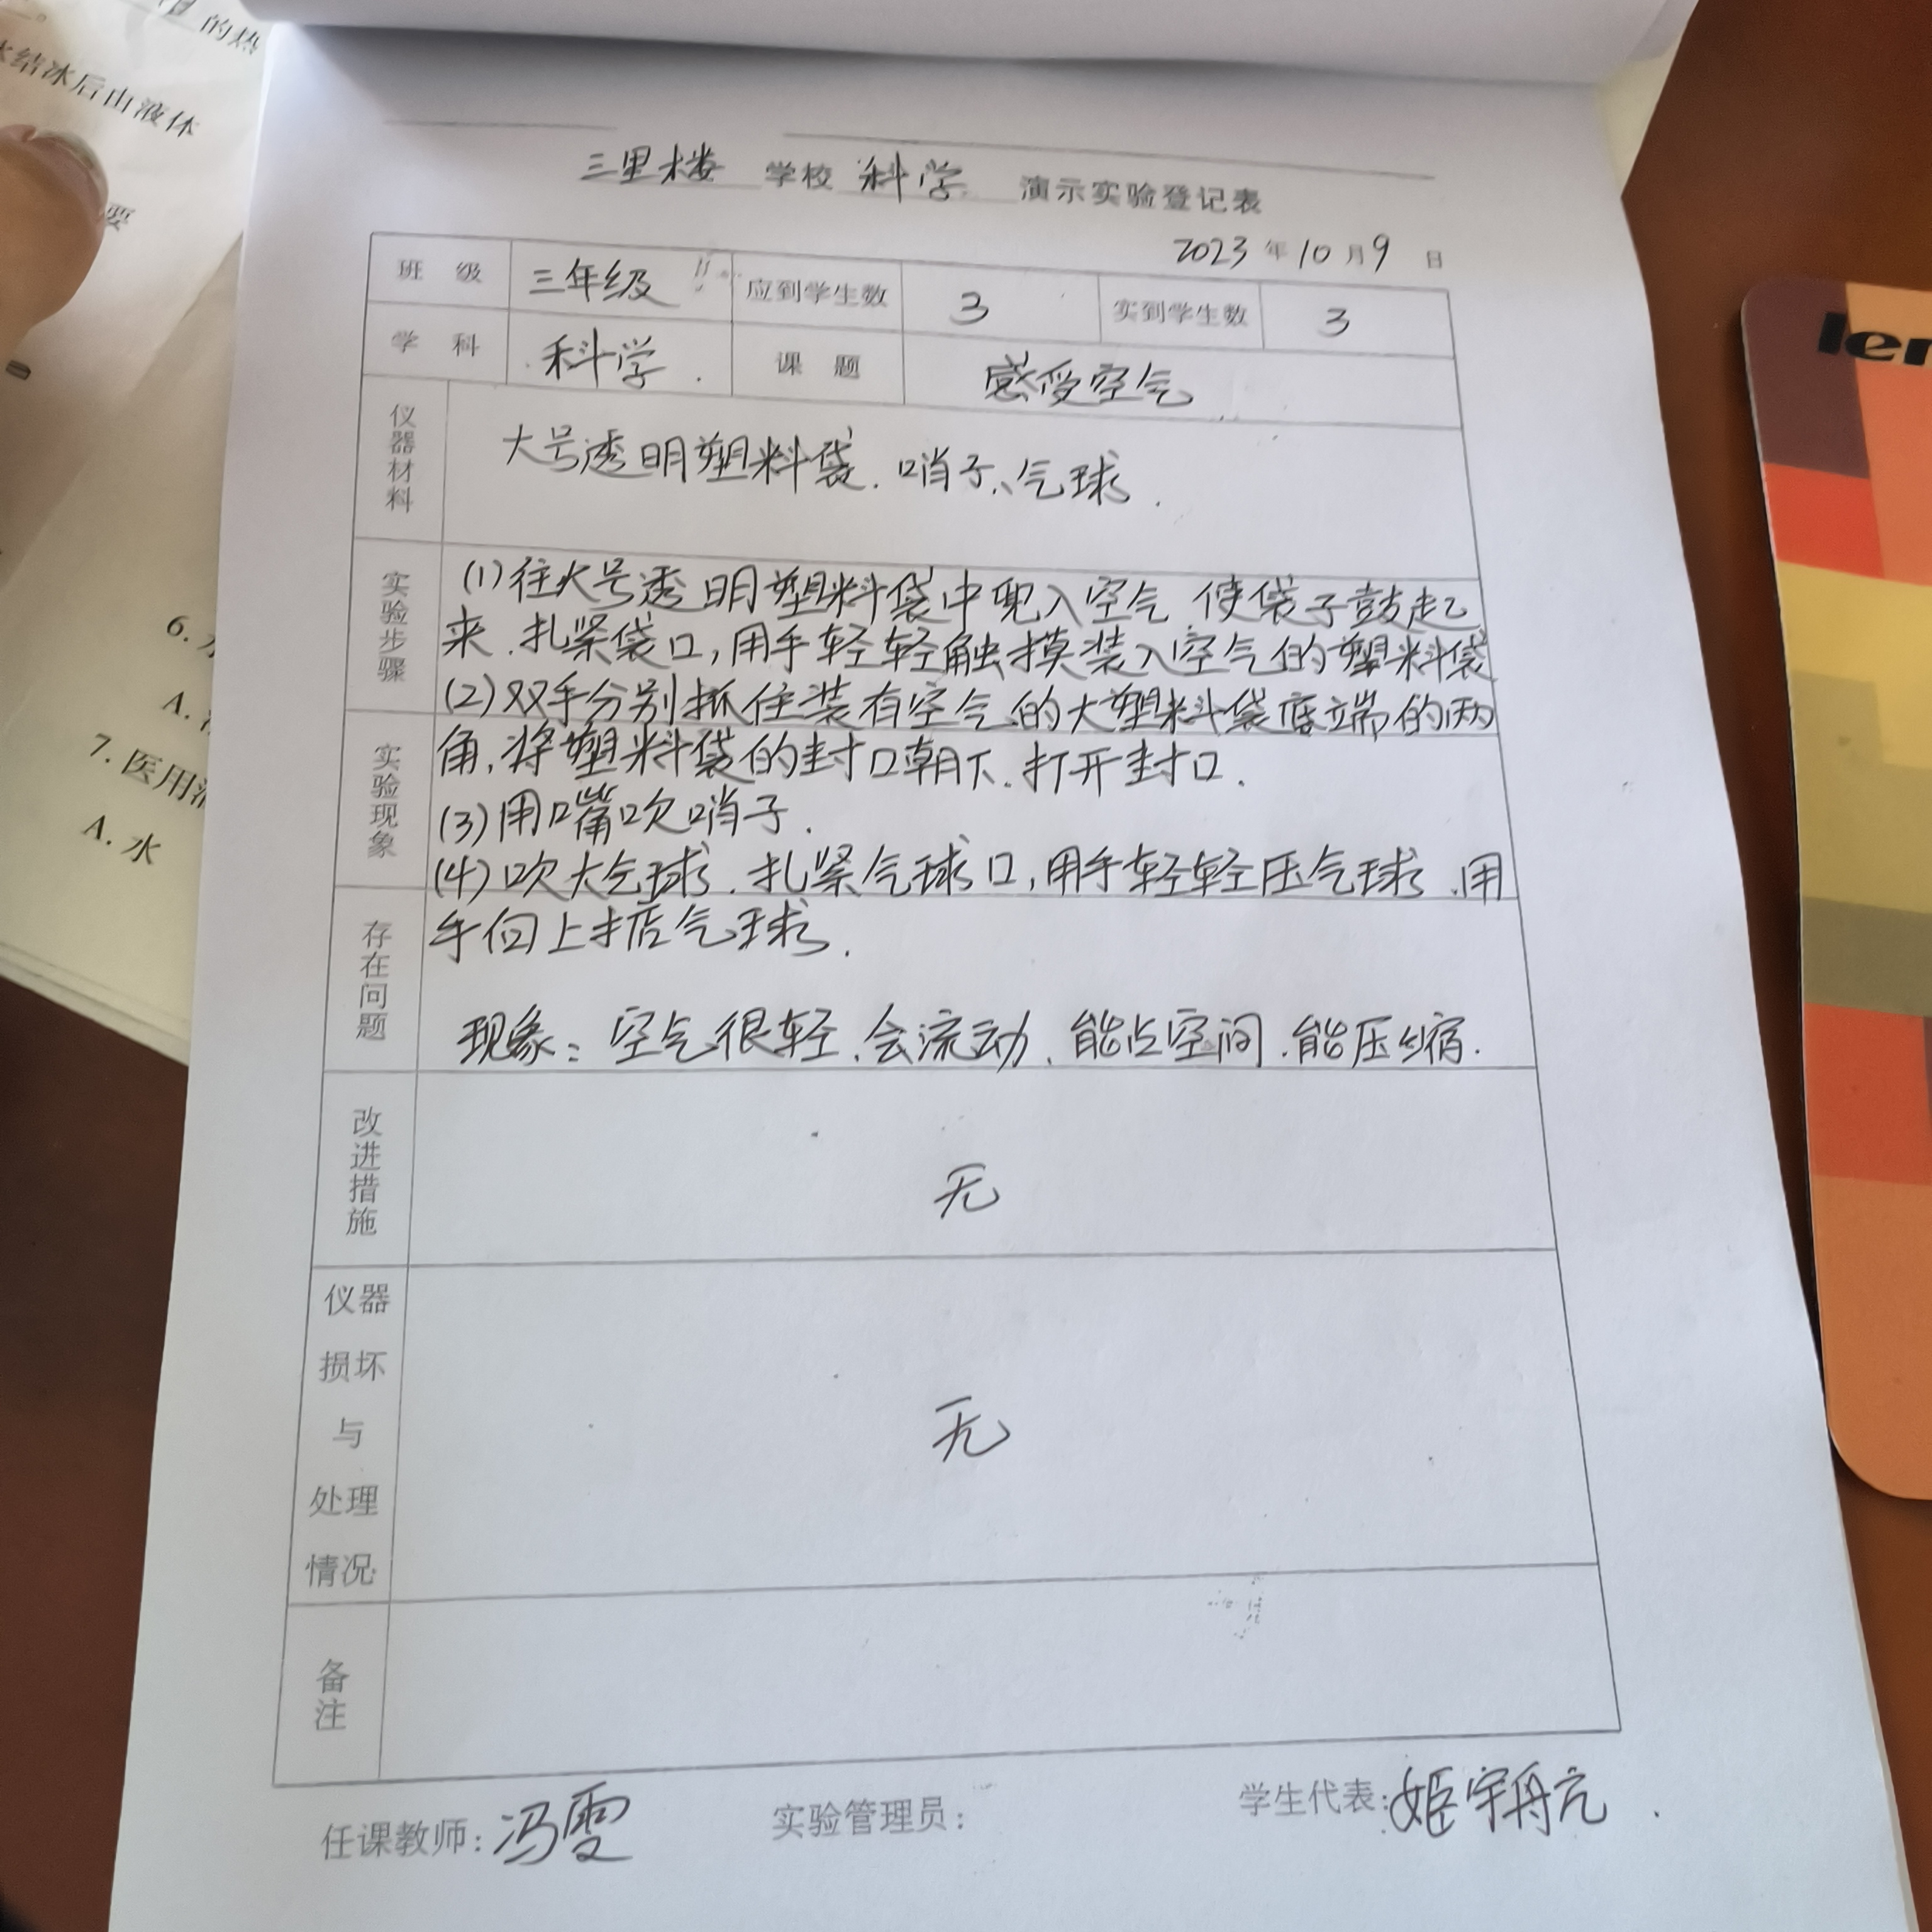 的热
水结冰后由液体
要
6.
A.
7. 医用酒
A. 水
len
三里楼 学校 科学 演示实验登记表
2023 年 10 月 9 日
班 级 三年级 应到学生数 3 实到学生数 3
学 科 科学. 课 题 感受空气
仪器材料 大号透明塑料袋. 哨子、气球.
实验步骤
(1)往大号透明塑料袋中兜入空气 使袋子鼓起
来.扎紧袋口,用手轻轻触摸装入空气的塑料袋
(2)双手分别抓住装有空气的大塑料袋底端的两
实验现象
角,将塑料袋的封口朝下.打开封口.
(3)用嘴吹哨子.
(4)吹大气球.扎紧气球口,用手轻轻压气球.用
存在问题
手向上掂气球.
现象:空气很轻、会流动、能占空间.能压缩.
改进措施 无
仪器
损坏
与
处理
情况
无
备注
任课教师:冯雯 实验管理员: 学生代表:姬宇